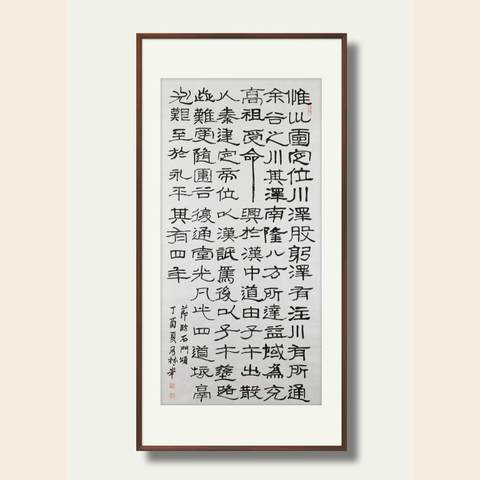 惟巛靈定位川澤股躬澤有注川有所通
余谷之川其澤南隆八方所達益域為充
高祖受命興於漢中道由子午出散
入秦建定帝位以漢詆焉後以子午塗路
歰難更隨圍谷復通堂光凡此四道垓鬲
尤艱至於永平其有四年
節臨石門頌
丁酉夏月